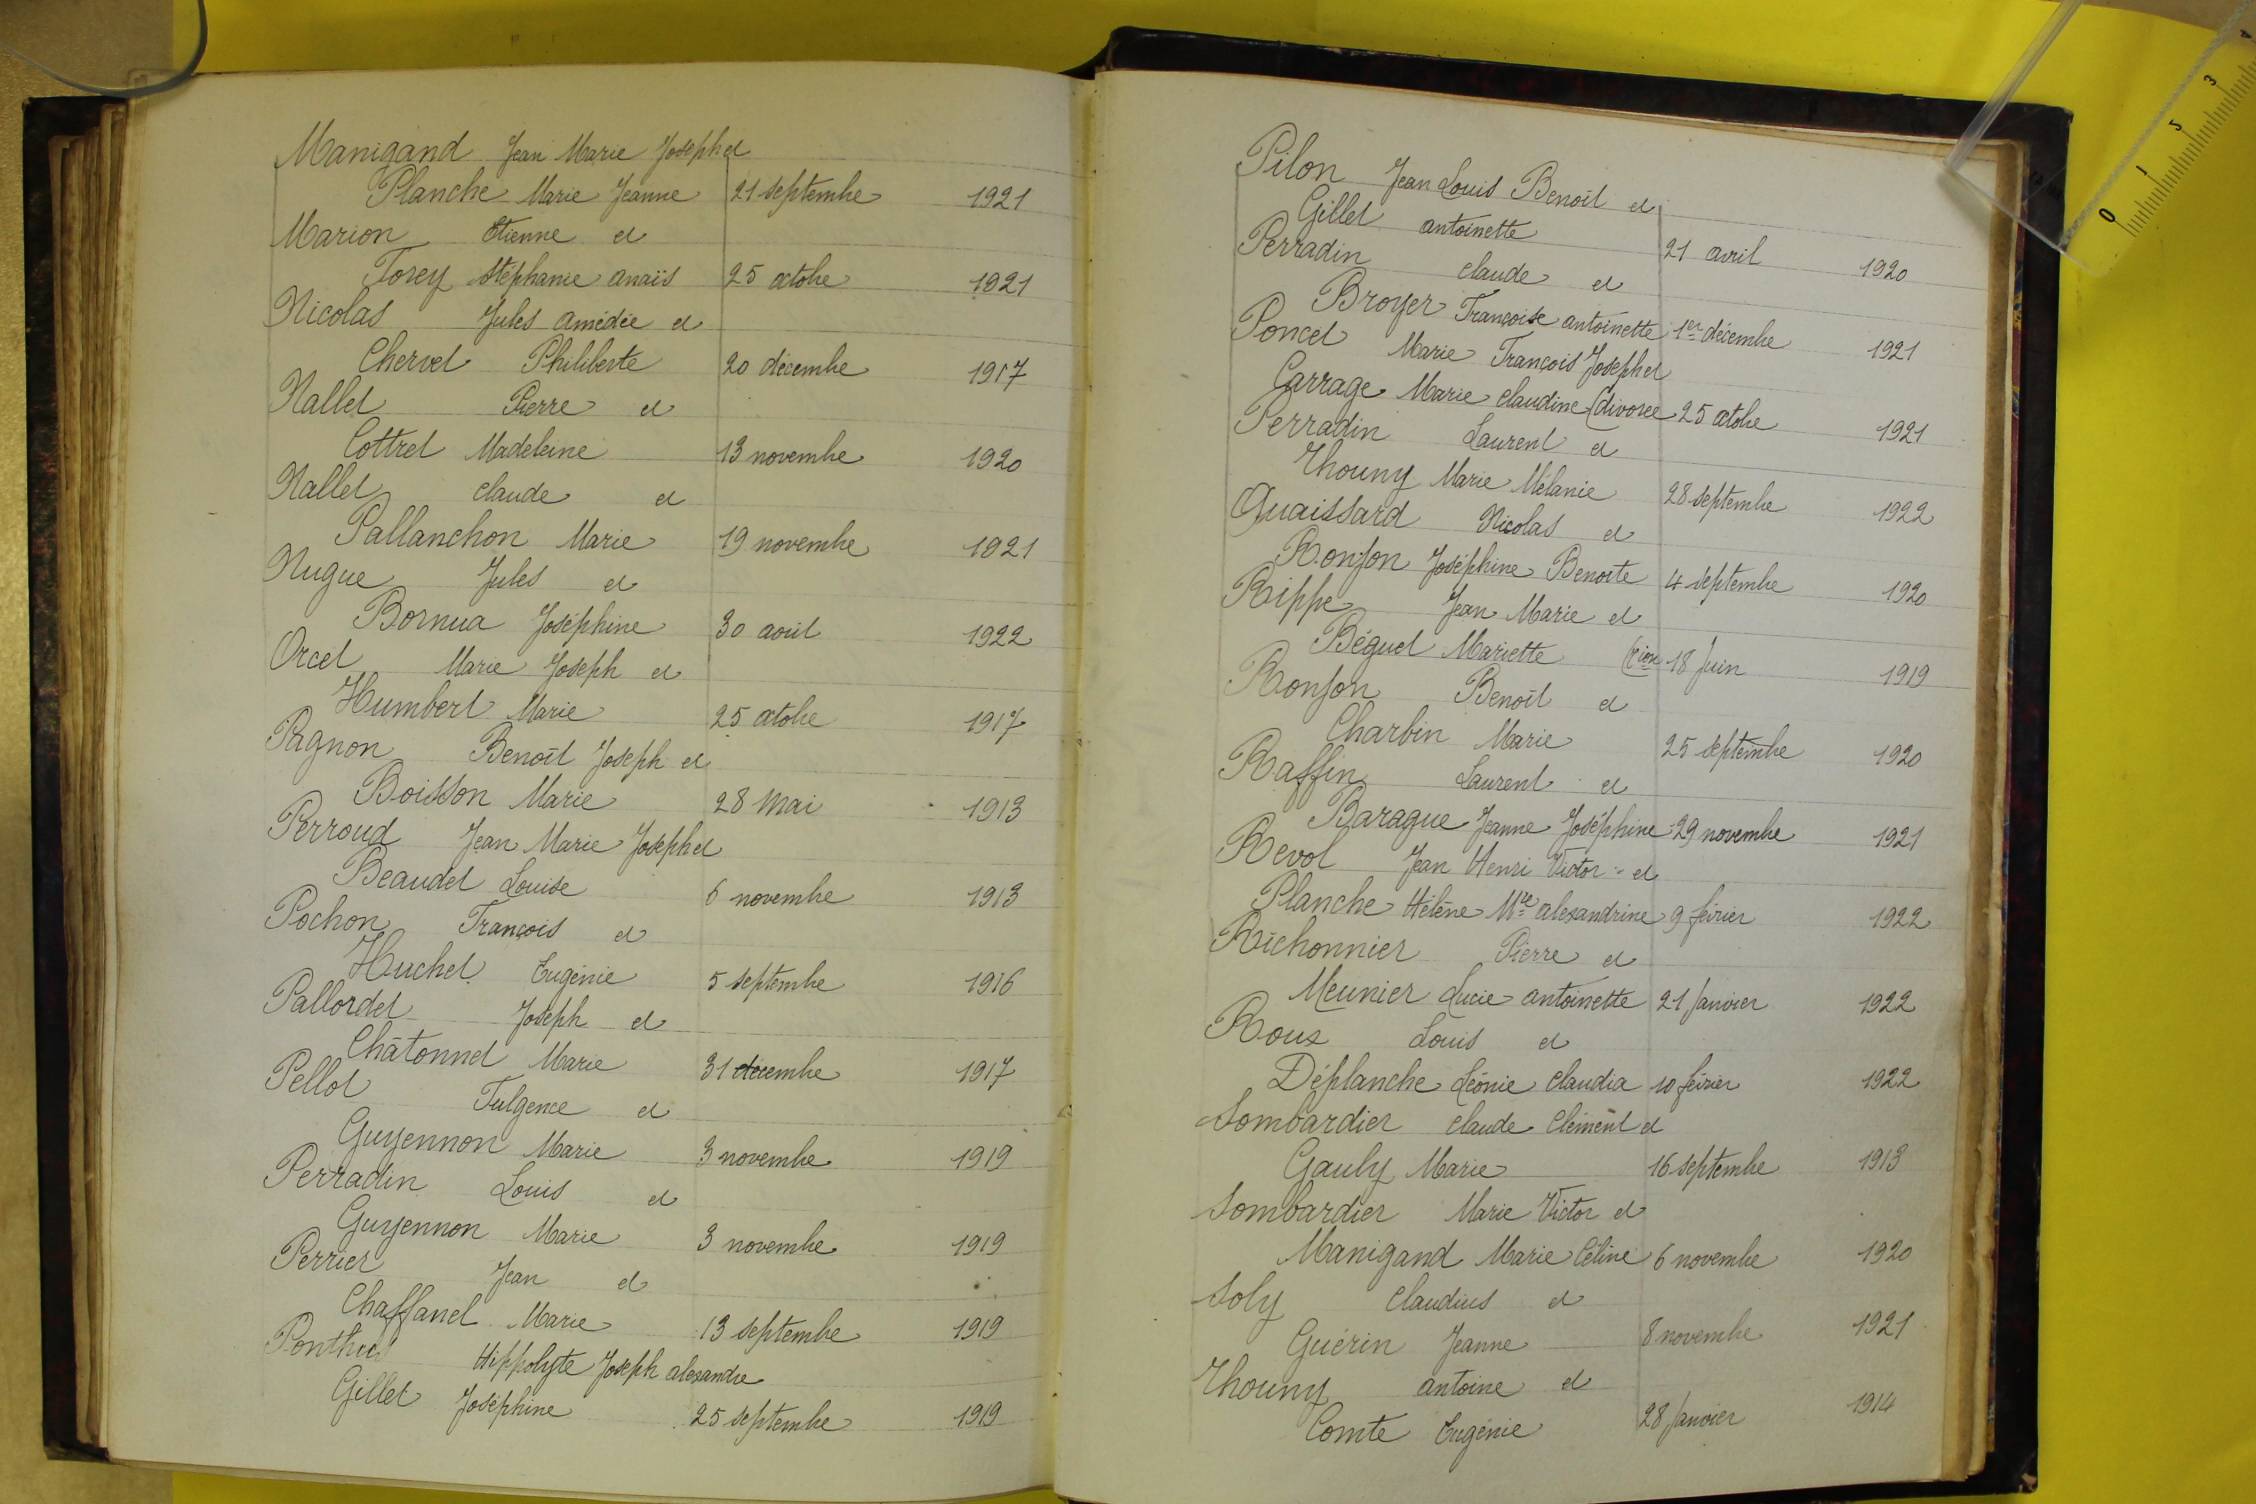 Manigand Jean Marie Joseph et
Planche Marie Jeanne 21 septembre 1921
Marion Etienne et
Forey Stéphanie anaïs 25 octobre 1921
Nicolas Jules Amédée et
Chervet Philiberte 20 décembre 1917
Nallet Pierre et
Cottret Madeleine 13 novembre 1920
Nallet claude et
Pallanchon Marie 19 novembre 1921
Nugue Jules et
Bornua Joséphine 30 août 1922
Orcet Marie Joseph et
Humbert Marie 25 octobre 1917
Pagnon Benoît Joseph et
Boisson Marie 28 Mai 1913
Perroud Jean Marie Joseph et
Beaudet Louise 6 novembre 1913
Pochon François et
Huchet Eugénie 5 septembre 1916
Pallordet Joseph et
Châtonnet Marie 31 décembre 1917
Pellot Fulgence et
Guyennon Marie 3 novembre 1919
Perradin Louis et
Guyennon Marie 3 novembre 1919
Perrier Jean et
Chaffanel Marie 13 septembre 1919
Ponthus Hippolyte Joseph alexandre
Gillet Joséphine 25 septembre 1919
Pilon Jean Louis Benoît et
Gillet antoinette 21 avril 1920
Perradin claude et
Broyer Françoise antoinette 1er décembre 1921
Poncet Marie François Joseph et
Carrage Marie claudine (divorcée 25 octobre 1921
Perradin Laurent et
Thouny Marie Mélanie 28 septembre 1922
Quaissard Nicolas et
Ronjon Joséphine Benoite 4 septembre 1920
Rippe Jean Marie et
Béguet Mariette 18 Juin 1919
Ronjon Benoît et
Charbin Marie 25 septembre 1920
Raffin Laurent et
Barague Jeanne Joséphine 29 novembre 1921
Revol Jean Henri Victor et
Planche Hélène Mie alexandrine 9 février 1922
Richonnier Pierre et
Meunier Lucie antoinette 21 Janvier 1922
Roux Louis et
Déplanche Léonie claudia 10 février 1922
Sombardier claude Clément et
Gauly Marie 16 septembre 1913
Sombardier Marie Victor et
Manigand Marie Céline 6 novembre 1920
Soly Claudius et
Guérin Jeanne 8 novembre 1921
Thouny antoine et
Comte Eugénie 28 Janvier 1914